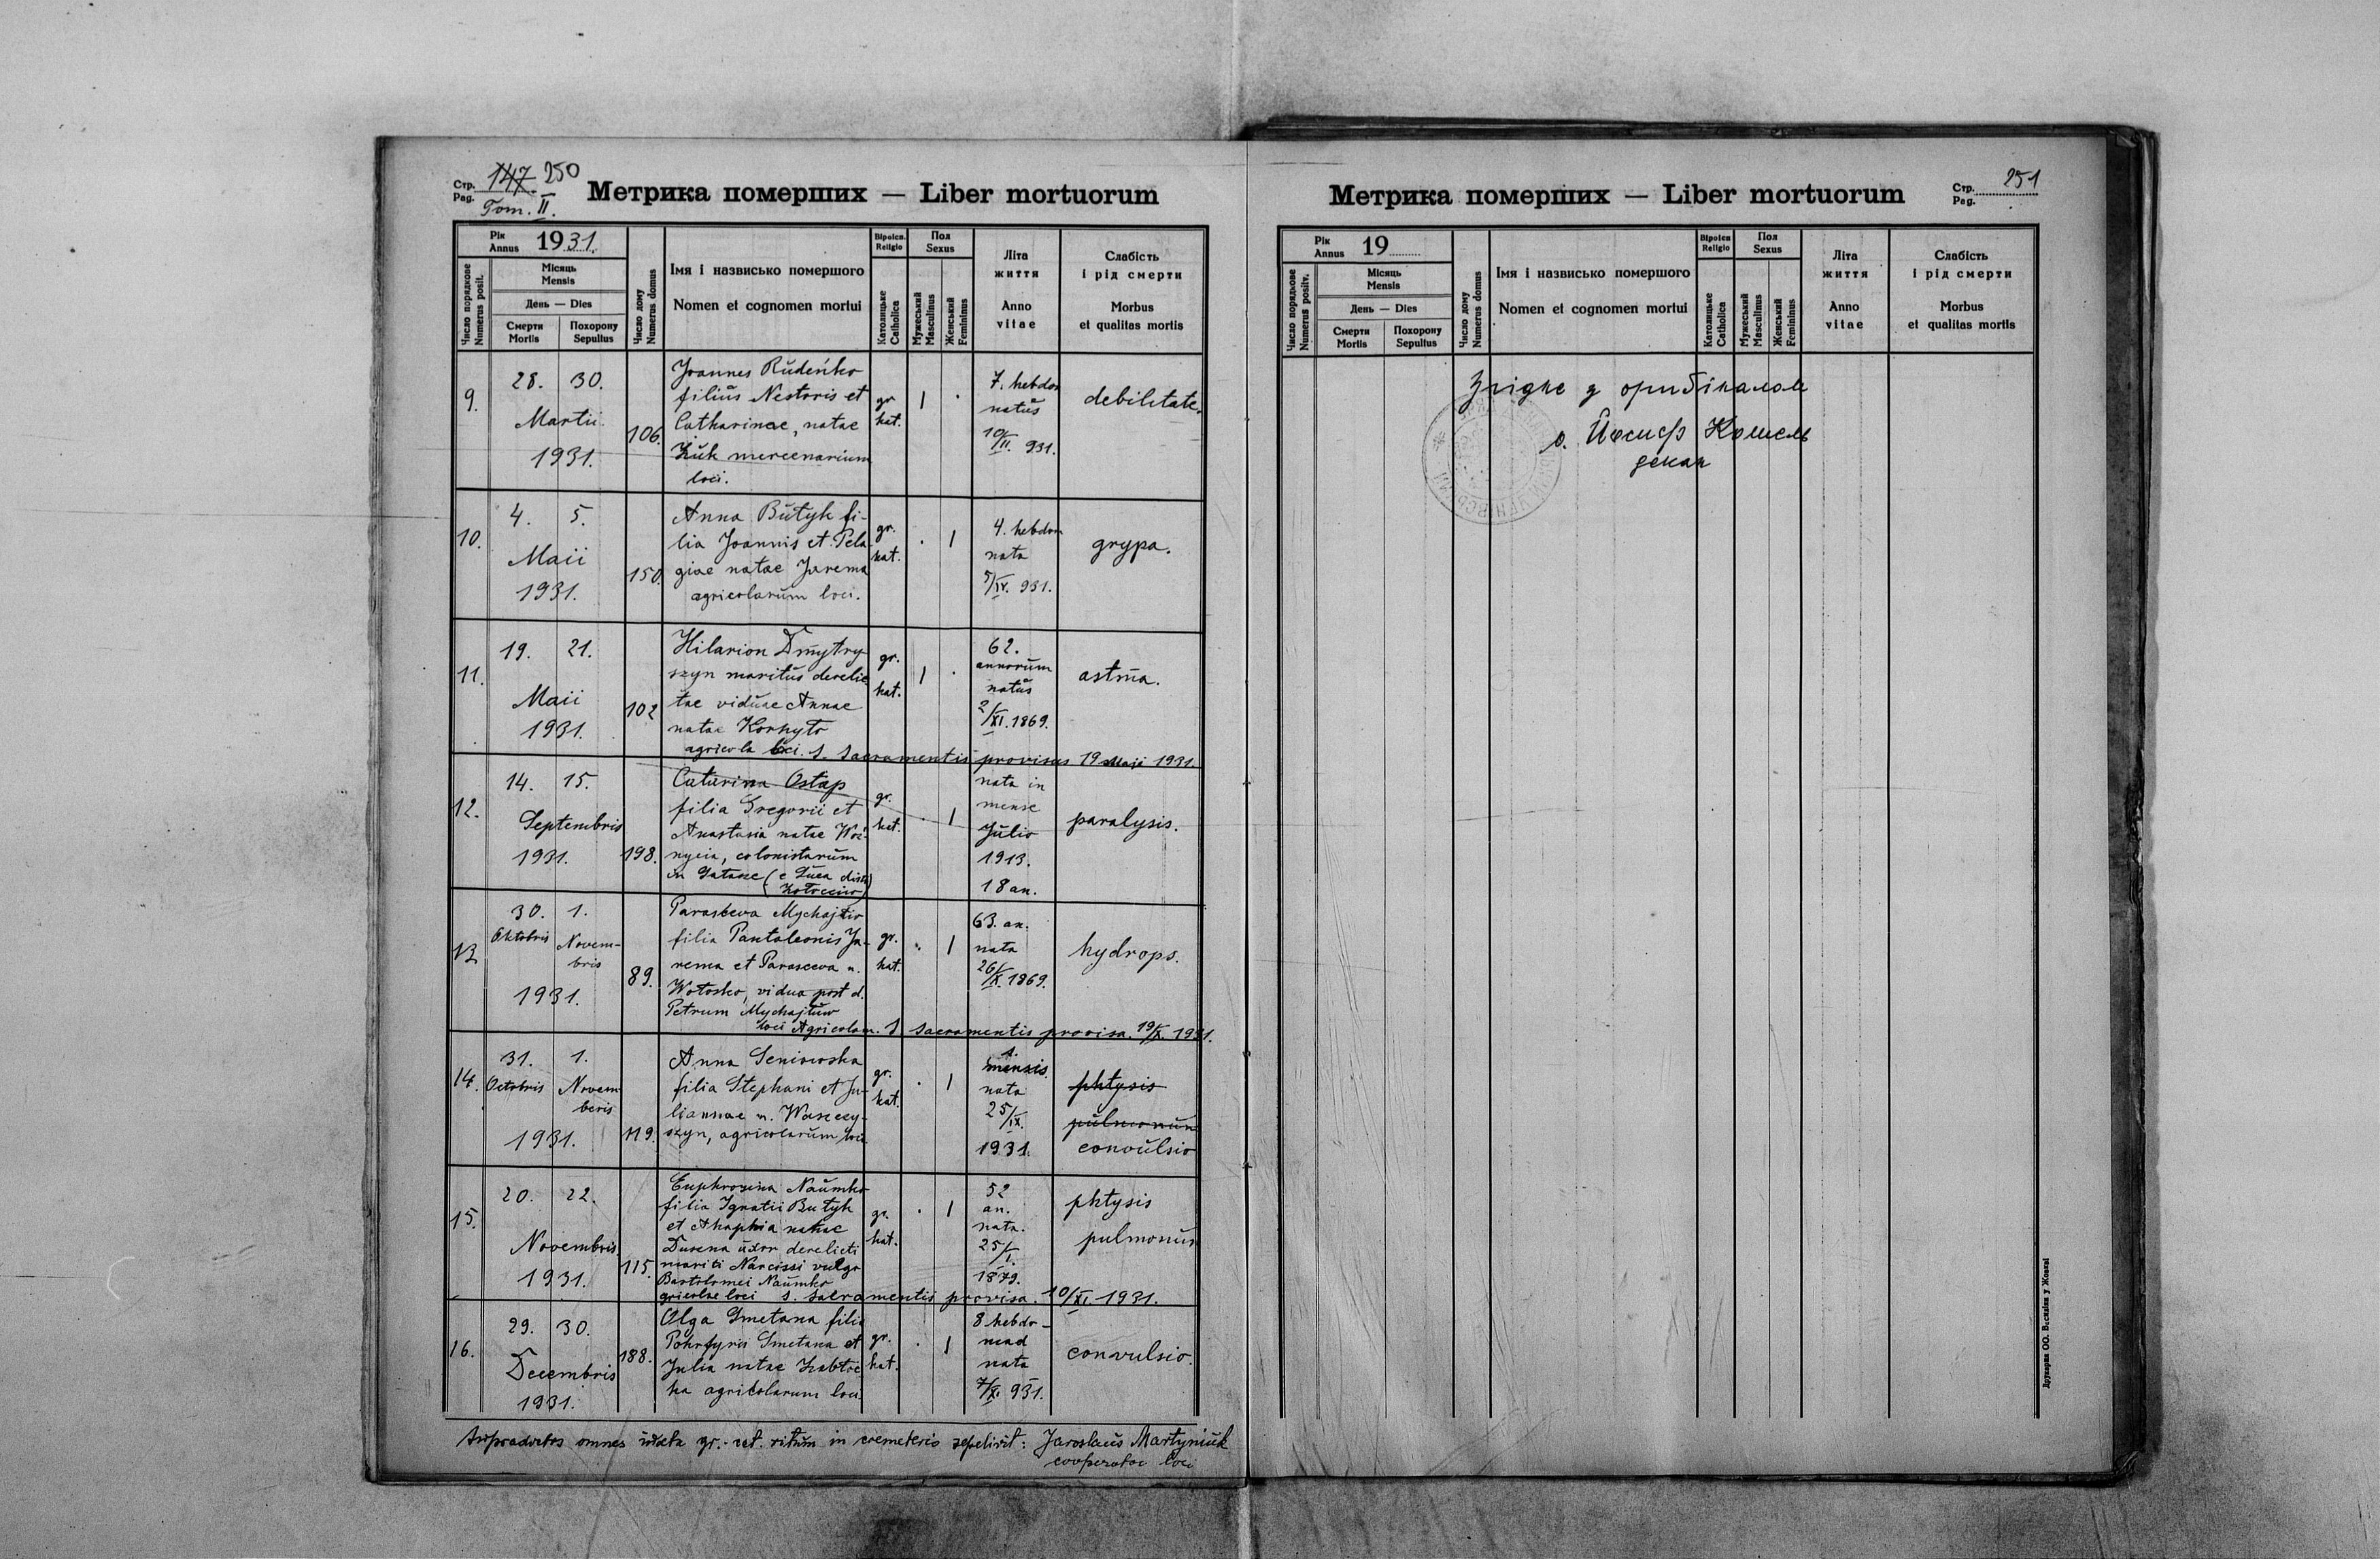 Стр. Pag. 147 250
Tom. II.
Метрика померших — Liber mortuorum
Рік Annus 1931.
Місяць
Mensis
День — Dies
Смерти Mortis
Похорону Sepultus
Число порядкове Numerus posit.
Число дому Numerus domus
Імя і назвисько померщого
Nomen et cognomen mortui
Віроісп. Religio
Католицьке Catholica
Пол Sexus
Мужеський Masculinus
Женський Femininus
Літа життя
Anno vitae
Слабість і рід смерти
Morbus et qualitas mortis
9.
28. 30.
Martii
1931.
106.
Joannes Rŭdeńko
filiŭs Nestoris et
Catharinae, natae
Żŭk mercenarium
loci.
gr. kat.
1 .
7. hebdom
natŭs
10/II. 931.
debilitate.
10.
4. 5.
Maii
1931.
150.
Anna Bŭtyk fi-
lia Joannis et Pela-
giae natae Jarema
agricolarŭm loci.
gr. kat.
. 1
4. hebdom
nata
5/IV. 931.
grypa.
11.
19. 21.
Maii
1931.
102
Hilarion Dmytry-
szyn maritŭs derelic-
tae vidŭae Annae
natae Korhyto
agricola loci. S. Sacramentis provisus 19 Maji 1931.
gr. kat.
1 .
62.
annorŭm
natŭs
2/XI. 1869.
astma.
12.
14. 15.
Septembris
1931.
198.
Catarina Ostap
filia Gregorii et
Anastasia natae
colonistarŭm
gr. kat.
. 1
nata in
mense
Jŭlio
1913.
18 an.
paralysis.
13
30. 1.
Oktobris Novem-
bris
1931.
89.
Parasceva Mychajliw
filia Pantaleonis Ja-
rema et Parasceva n.
Wołosko, vidua post d.
Petrum Mychajlŭw
loci Agricolam. S sacramentis provisa. 19/X. 1931.
gr. kat.
. 1
63. an.
nata
26/X. 1869.
hydrops.
14.
31. 1.
Octobris Novem
beris
1931.
119.
Anna Seniowska
filia Stephani et Ju-
liannae n. Waseczy-
szyn, agricolarŭm loci
gr. kat.
. 1
1.
mensis.
nata
25/IX.
1931.
phtysis
pŭlmonŭm
convŭlsio
15.
20. 22.
Novembris.
1931.
115.
Euphrosina Naŭmko
filia Ignatii Butyk
et Ahaphia natae
Dusena ŭxor derelicti
mariti Narcissi vulgo
Bartolomei Naŭmko
gricolae loci S. Sacramentis provisa. 10/XI. 1931.
gr. kat.
. 1
52
an.
nata.
25/I.
1879.
phtysis
pulmonŭm
16.
29. 30.
Decembris
1931.
188.
Olga Smetana filia
Pohrfyrii Smetana et
Julia natae
ka agricolarum loci.
gr. kat.
. 1
8 hebdo-
mad
nata
7/XI. 931.
convulsio.
omnes gr.-cat. ritŭm in coemeterio sepelivit: Jaroslaŭs Martyniŭk
cooperator loci
Стр. Pag. 251
Метрика померших — Liber mortuorum
Рік Annus 19
Місяць
Mensis
День — Dies
Смерти Mortis
Похорону Sepultus
Число порядкове Numerus positv.
Число дому Numerus domus
Імя і назвисько померщого
Nomen et cognomen mortui
Віроісп Religio
Католицьке Catholica
Пол Sexus
Мужеський Masculinus
Женський Femininus
Літа життя
Anno vitae
Слабість і рід смерти
Morbus et qualitas mortis
Згідне з ориґіналом
о. Йосиф Кошель
декан
Друкарня ОО. Василіян у Жовкві